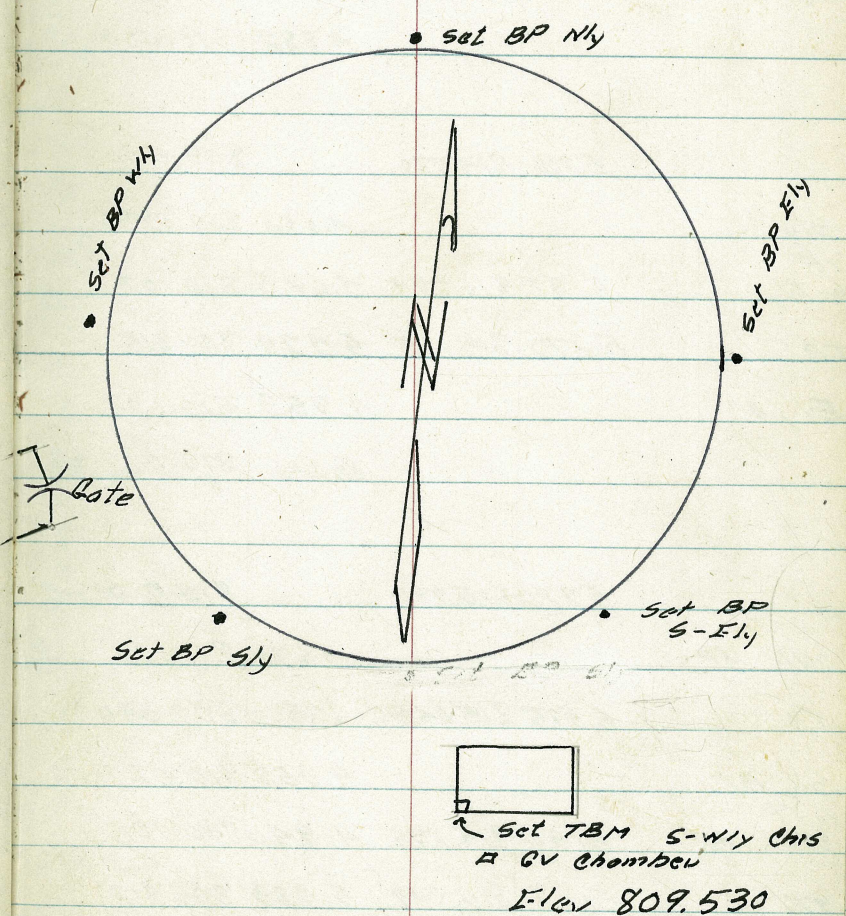 Set BP Nly
Set BP Wly
Set BP Ely
N
Gate
Set BP
S-Ely
Set BP Sly
Set BP Sly
Set TBM S-Wly Chis
□ GV Chamber
Elev 809.530